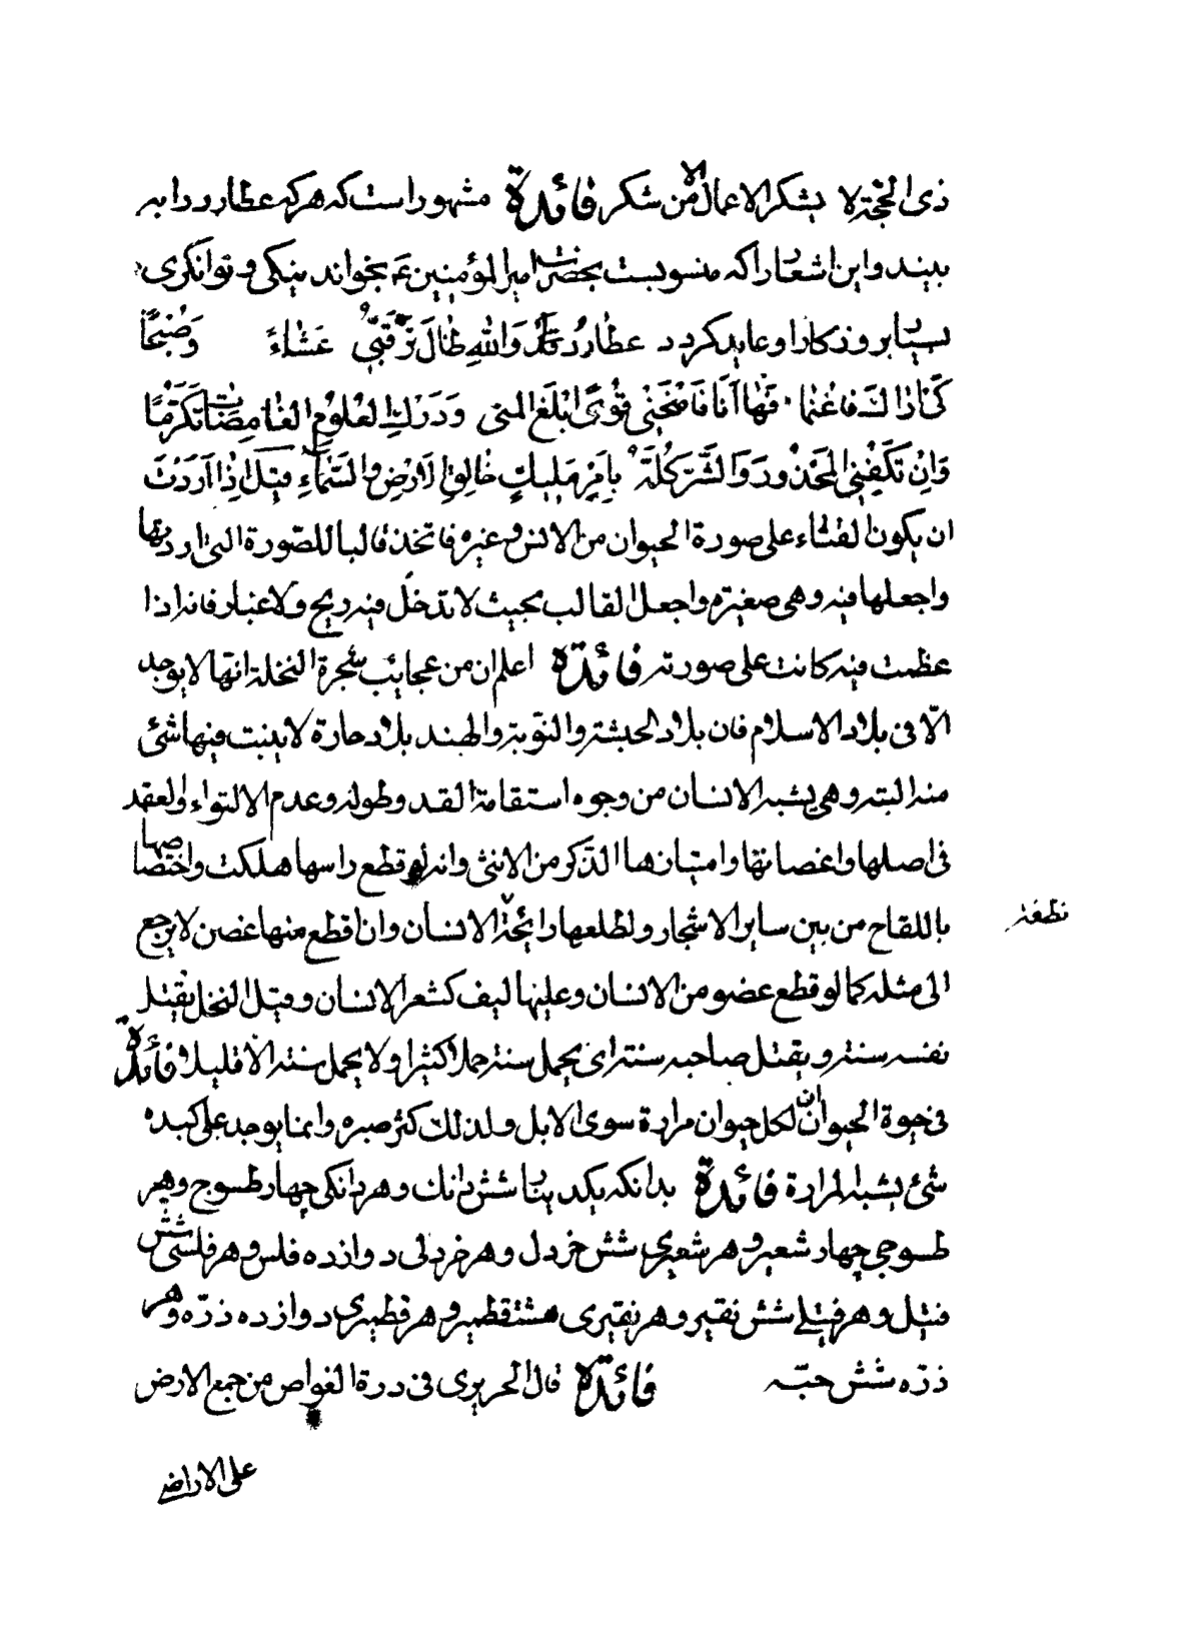 ذى الحجة لا يشكر الاعمال الا من شكر فائدة مشهور است كه هر كه عطارد را به
بيند و اين اشعار را كه منسوبست بحضرت امير المؤمنين ع بخواند بنيكى و توانكرى
بسيار روزكار او عايد كردد عطارد والله طال ترقبى عشاء وصبحا
كى اراك فاغنما فها انا فامنحنى قوى ابلغ المنى ودرك العلوم الغامضات تكرما
وان تكفينى المحذور والشر كله بامر مليك خالق الارض والسماء قيل اذا اردت
ان يكون القثاء على صورة الحيوان من الانس و غيره فاتخذ قالبا للصورة التى اردتها
واجعلها فيه وهى صغيرة واجعل القالب بحيث لا تدخل فيه ريح ولا غبار فانه اذا
عظمت فيه كانت على صورته فائدة اعلم ان من عجايب شجرة النخلة انها لا يوجد
الا فى بلاد الاسلام فان بلاد الحبشة والنوبة والهند بلاد حارة لا ينبت فيها شئ
منه البته وهى يشبه الانسان من وجوه استقامة القد وطوله وعدم الالتواء والعقد
فى اصلها واغصانها وامتيازها الذكر من الانثى وانه لو قطع راسها هلكت واختصاصها
باللقاح من بين ساير الاشجار ولطلعها رائحة الانسان وان قطع منها غصن لا يرجع
نطفة
الى مثله كما لو قطع عضو من الانسان وعليها ليف كشعر الانسان وقيل النخل يقتل
نفسه سنة ويقتل صاحبه سنة اى يحمل سنة حملا كثيرا ولا يحمل سنة الا قليلا فائدة
فى حيوة الحيوان ان لكل حيوان مرارة سوى الابل ولذلك كثر صبره وانما يوجد على كبده
شئ يشبه المرارة فائدة بدانكه يكدينار شش دانك و هر دانكى چهار طسوج و هر
طسوجى چهار شعير و هر شعيرى شش خردل و هر خردلى دوازده فلس و هر فلسى شش
فتيل و هر فتيلى شش نقير و هر نقيرى هشت قطمير و هر قطميرى دوازده ذره و هر
ذره شش حبه فائدة قال الحريرى فى درة الغواص من جمع الارض
على الاراضى